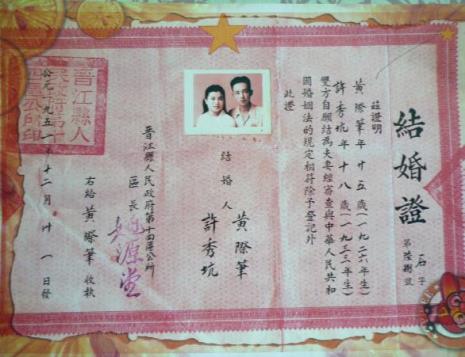 結婚證
第 字
第陸捌號
茲證明
黃際筆年廿五歲(一九二六年生)
許秀坑年十八歲(一九三三年生)
雙方自願結為夫妻經審查與中華人民共和
國婚姻法的規定相符除予登記外
此證
結婚人
黃際筆
許秀坑
晋江縣人民政府第十四區公所
區長
右給黃際筆收執
公元一九五一年十二月廿一日發
晋江縣人
民政府第十
四區公所印